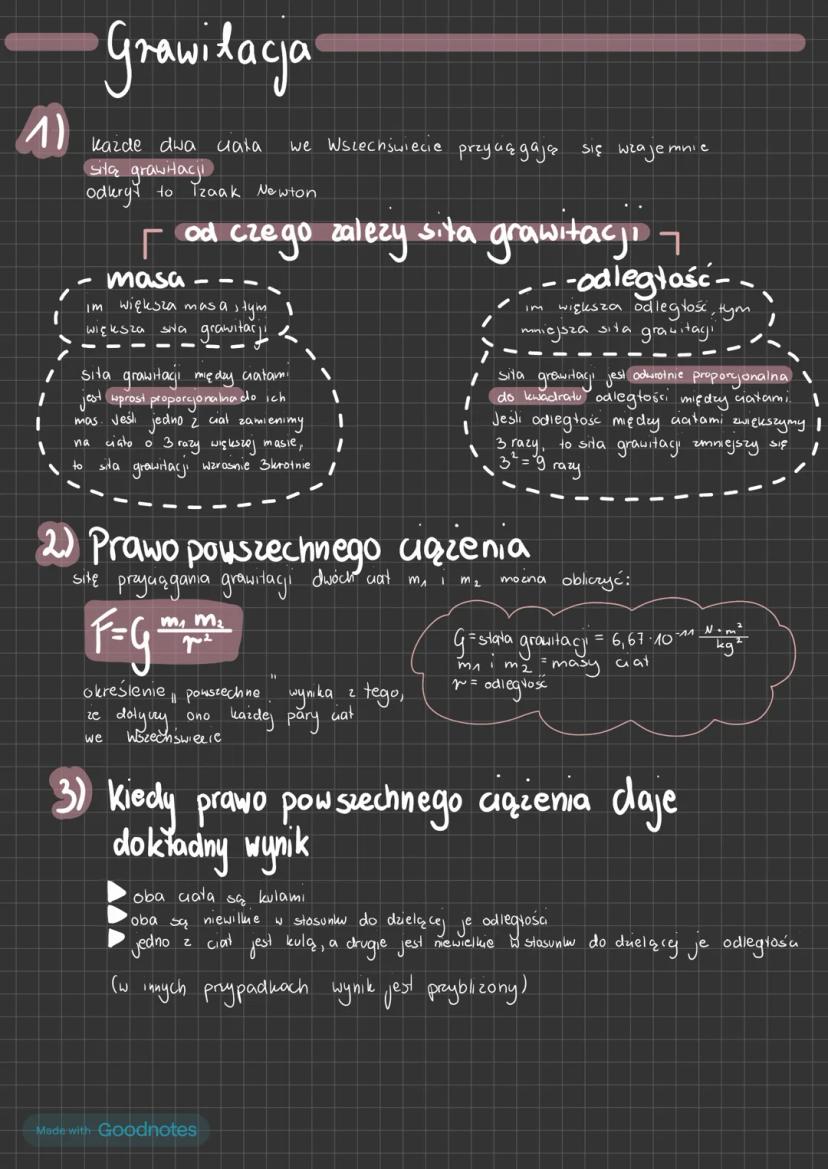 Grawitacja
1)
każde dwa ciała we Wszechświecie przyciągają się wzajemnie
siłą grawitacji
odkrył to Izaak Newton
od czego zależy siła grawitacji
masa
im większa masa, tym
większa siła grawitacji
siła grawitacji między ciałami
jest wprost proporcjonalna do ich
mas. Jeśli jedno z ciał zamienimy
na ciało o 3 razy większej masie,
to siła grawitacji wzrośnie 3krotnie
odległość
im większa odległość, tym
mniejsza siła grawitacji
siła grawitacji jest odwrotnie proporcjonalna
do kwadratu odległości między ciałami.
Jeśli odległość między ciałami zwiększymy
3 razy, to siła grawitacji zmniejszy się
3² = 9 razy
2) Prawo powszechnego ciążenia
siłę przyciągania grawitacji dwóch ciał m₁ i m₂ można obliczyć:
F=G m₁ m₂ / r²
G = stała grawitacji = 6,67·10⁻¹¹ N·m² / kg²
m₁ i m₂ = masy ciał
r = odległość
określenie „powszechne" wynika z tego,
że dotyczy ono każdej pary ciał
we Wszechświecie
3) Kiedy prawo powszechnego ciążenia daje
dokładny wynik
oba ciała są kulami
oba są niewilkie w stosunku do dzielącej je odległości
jedno z ciał jest kulą, a drugie jest niewielkie w stosunku do dzielącej je odległości
(w innych przypadkach wynik jest przybliżony)
Made with Goodnotes